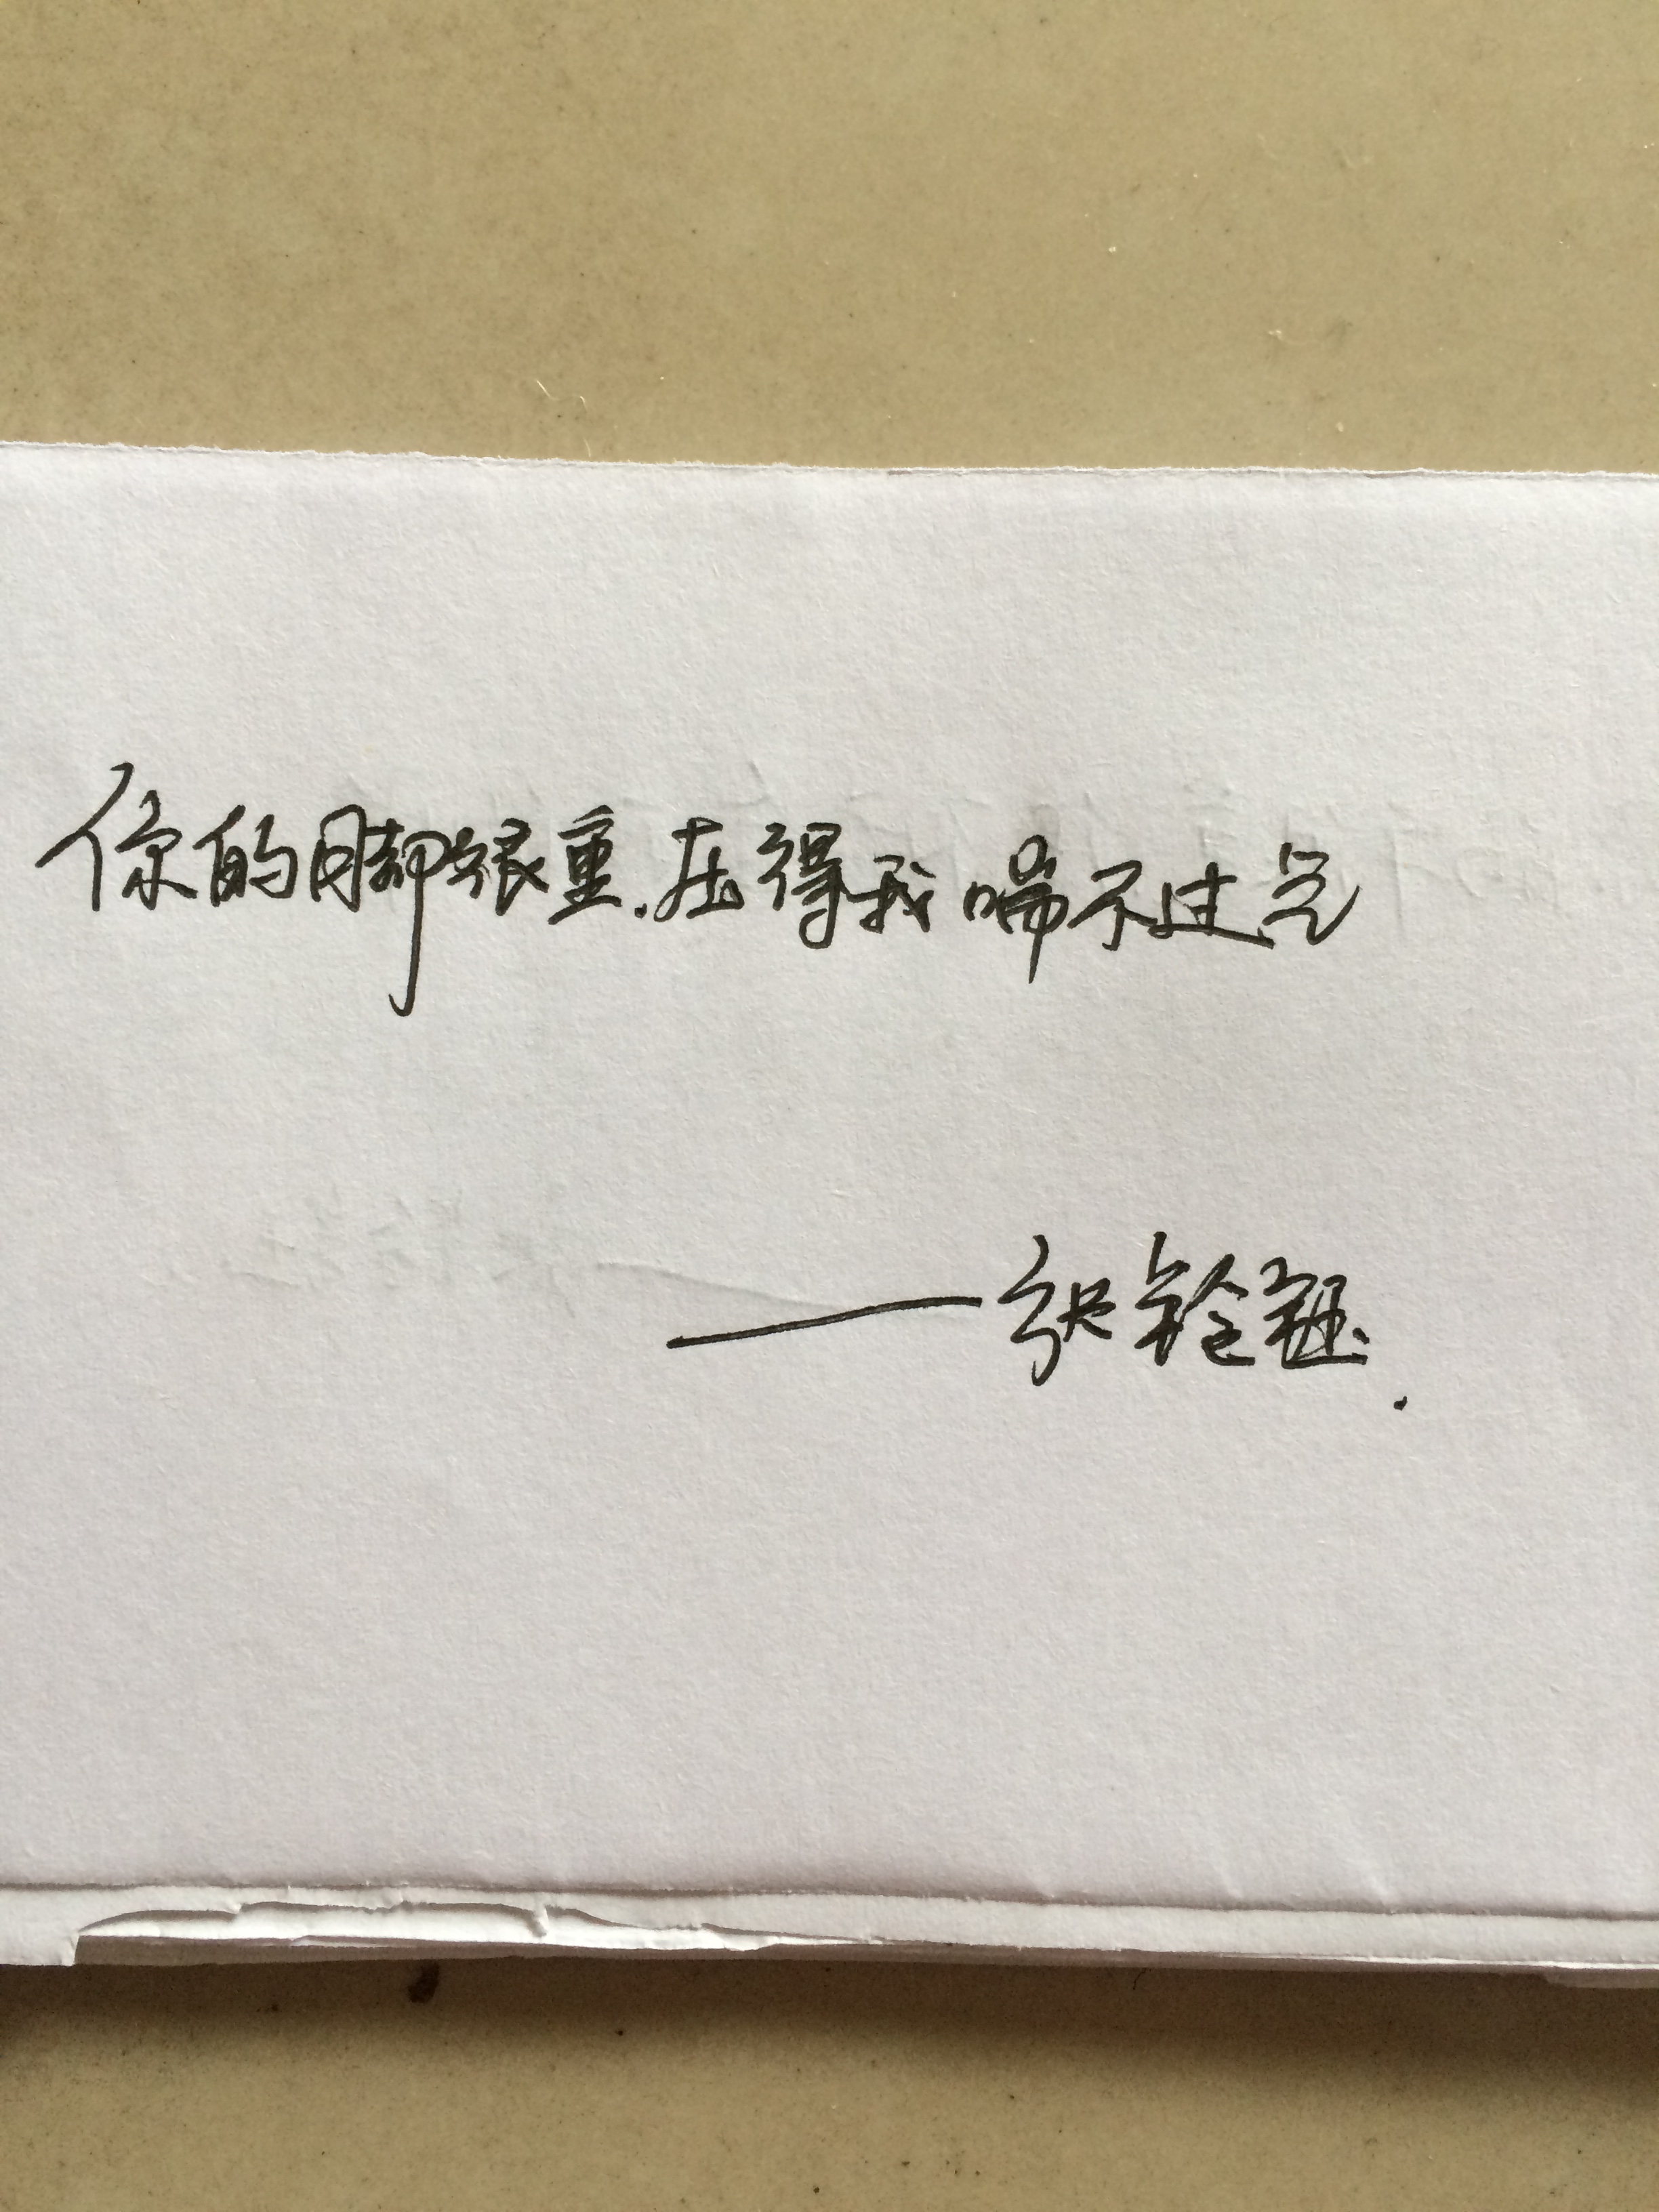 你的脚很重.压得我喘不过气
——张铃钰.